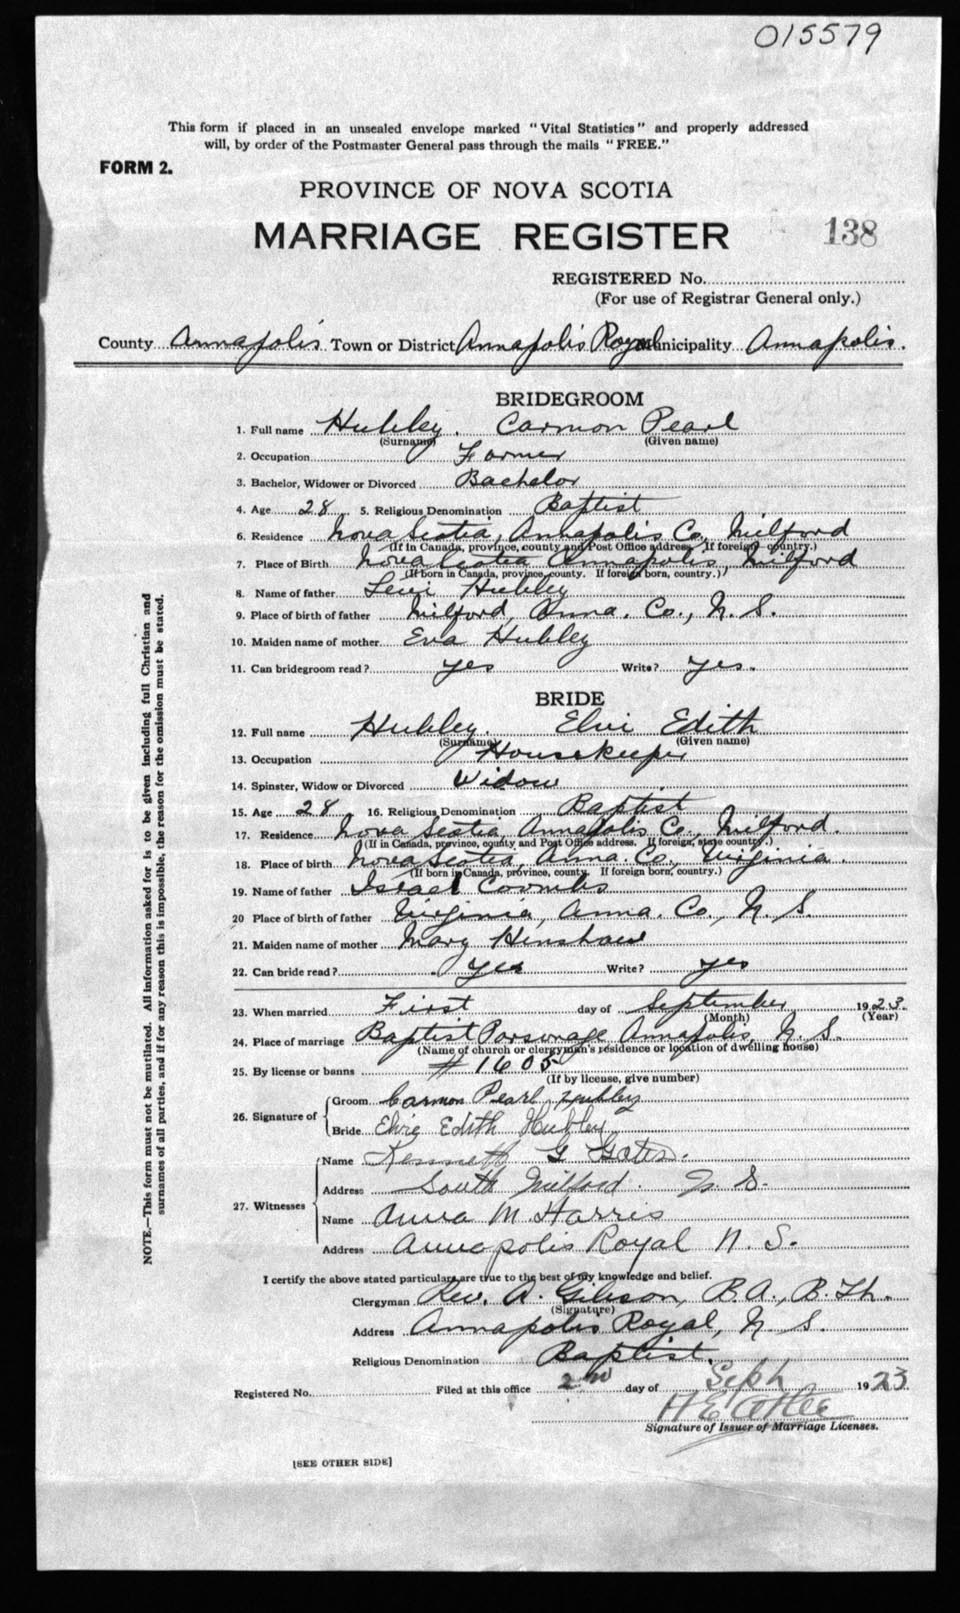 015579
This form if placed in an unsealed envelope marked "Vital Statistics" and properly addressed
will, by order of the Postmaster General pass through the mails "FREE."
FORM 2.
PROVINCE OF NOVA SCOTIA
MARRIAGE REGISTER 138
REGISTERED No.
(For use of Registrar General only.)
County Annapolis Town or District Annapolis Royal Municipality Annapolis.
BRIDEGROOM
1. Full name Hubley. Carmon Pearl
(Surname) (Given name)
2. Occupation Farmer
3. Bachelor, Widower or Divorced Bachelor
4. Age 28 5. Religious Denomination Baptist
6. Residence Nova Scotia, Annapolis Co, Milford
(If in Canada, province, county and Post Office address. If foreign country.)
7. Place of Birth Nova Scotia Annapolis, Milford
(If born in Canada, province, county. If foreign born, country.)
8. Name of father Levi Hubley
9. Place of birth of father Milford, Anna. Co., N. S.
10. Maiden name of mother Eva Hubley
11. Can bridegroom read? yes Write? yes.
BRIDE
12. Full name Hubley. Elvi Edith
(Surname) (Given name)
13. Occupation Housekeeper
14. Spinster, Widow or Divorced Widow
15. Age 28 16. Religious Denomination Baptist
17. Residence Nova Scotia, Annapolis Co., Milford.
(If in Canada, province, county and Post Office address. If foreign, state country.)
18. Place of birth Nova Scotia, Anna. Co., Virginia.
(If born in Canada, province, county. If foreign born, country.)
19. Name of father Israel Coombs
20 Place of birth of father Virginia, Anna. Co., N. S.
21. Maiden name of mother Mary Henshaw
22. Can bride read? yes Write? yes
23. When married First day of September 1923.
(Month) (Year)
24. Place of marriage Baptist Parsonage Annapolis, N. S.
(Name of church or clergyman's residence or location of dwelling house)
25. By license or banns # 1605
(If by license, give number)
26. Signature of
Groom Carmon Pearl Hubley
Bride Elvie Edith Hubley
27. Witnesses
Name Kenneth G Gates.
Address South Milford. N. S.
Name Anna M. Harris
Address Annapolis Royal N. S.
I certify the above stated particulars are true to the best of my knowledge and belief.
Clergyman Rev. A. Gibson, B.A., B.Th.
(Signature)
Address Annapolis Royal, N. S.
Religious Denomination Baptist.
Registered No. Filed at this office 2nd day of Sept 1923
Signature of Issuer of Marriage Licenses.
[SEE OTHER SIDE]
NOTE.—This form must not be mutilated. All information asked for is to be given including full Christian and
surnames of all parties, and if for any reason this is impossible, the reason for the omission must be stated.